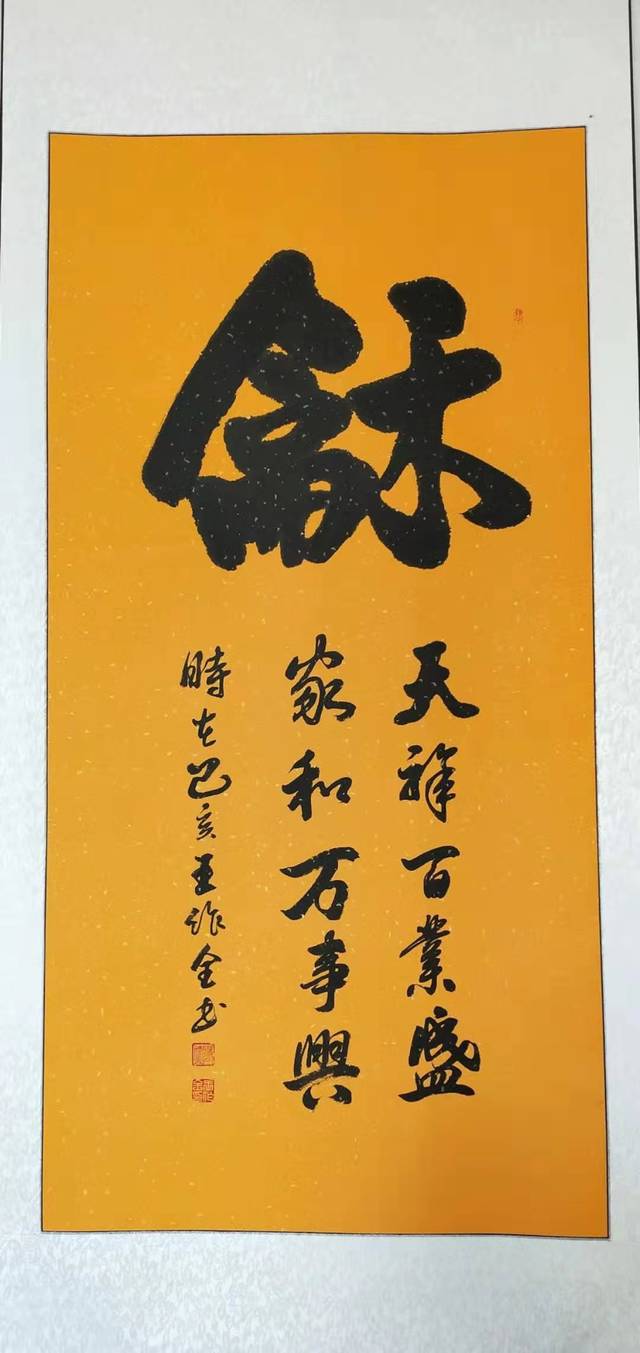 龢
天祥百業盛
家和万事興
時在己亥王祚全书